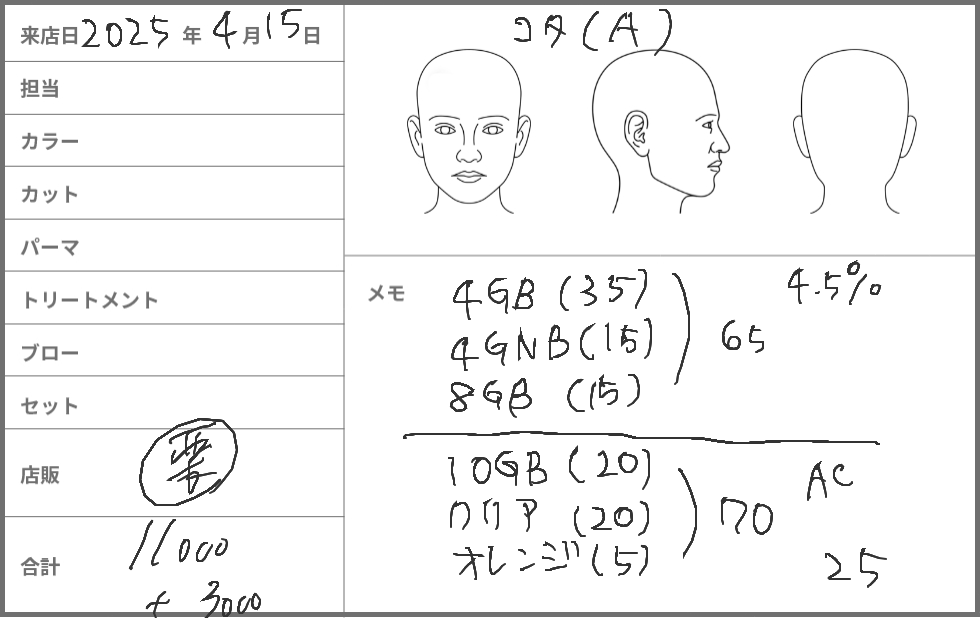 来店日 2025 年 4 月 15 日
担当
カラー
カット
パーマ
トリートメント
ブロー
セット
店販
合計 11000
+ 3000
コタ(A)
メモ
4GB (35)
4GNB (15)
8GB (15)
65
4.5%
10GB (20)
クリア (20)
オレンジ (5)
70
AC
25